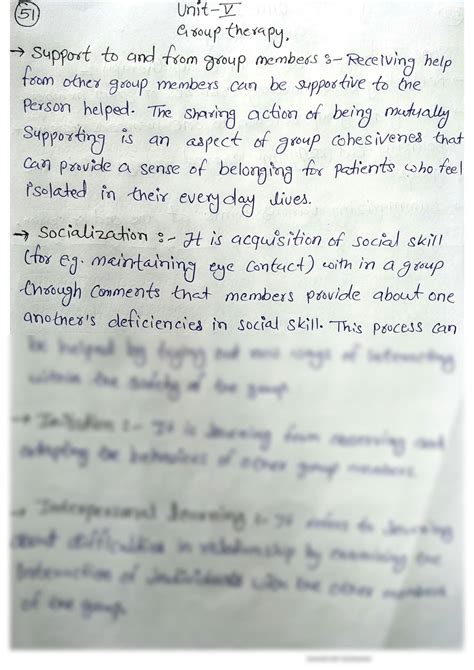 51
Unit-V
Group therapy.
→ Support to and from group members :- Receiving help
from other group members can be supportive to the
Person helped. The sharing action of being mutually
Supporting is an aspect of group cohesivenes that
can provide a sense of belonging for patients who feel
isolated in their everyday lives.
→ Socialization :- It is acquisition of social skill
(for eg. maintaining eye contact) with in a group
through comments that members provide about one
another's deficiencies in social skill. This process can
be helped by trying out new ways of interacting
within the safety of the group.
→ Imitation :- It is learning from observing and
adapting the behaviors of other group members.
→ Interpersonal learning :- It refers to learning
about difficulties in relationship by examining the
interaction of individuals with the other members
of the group.